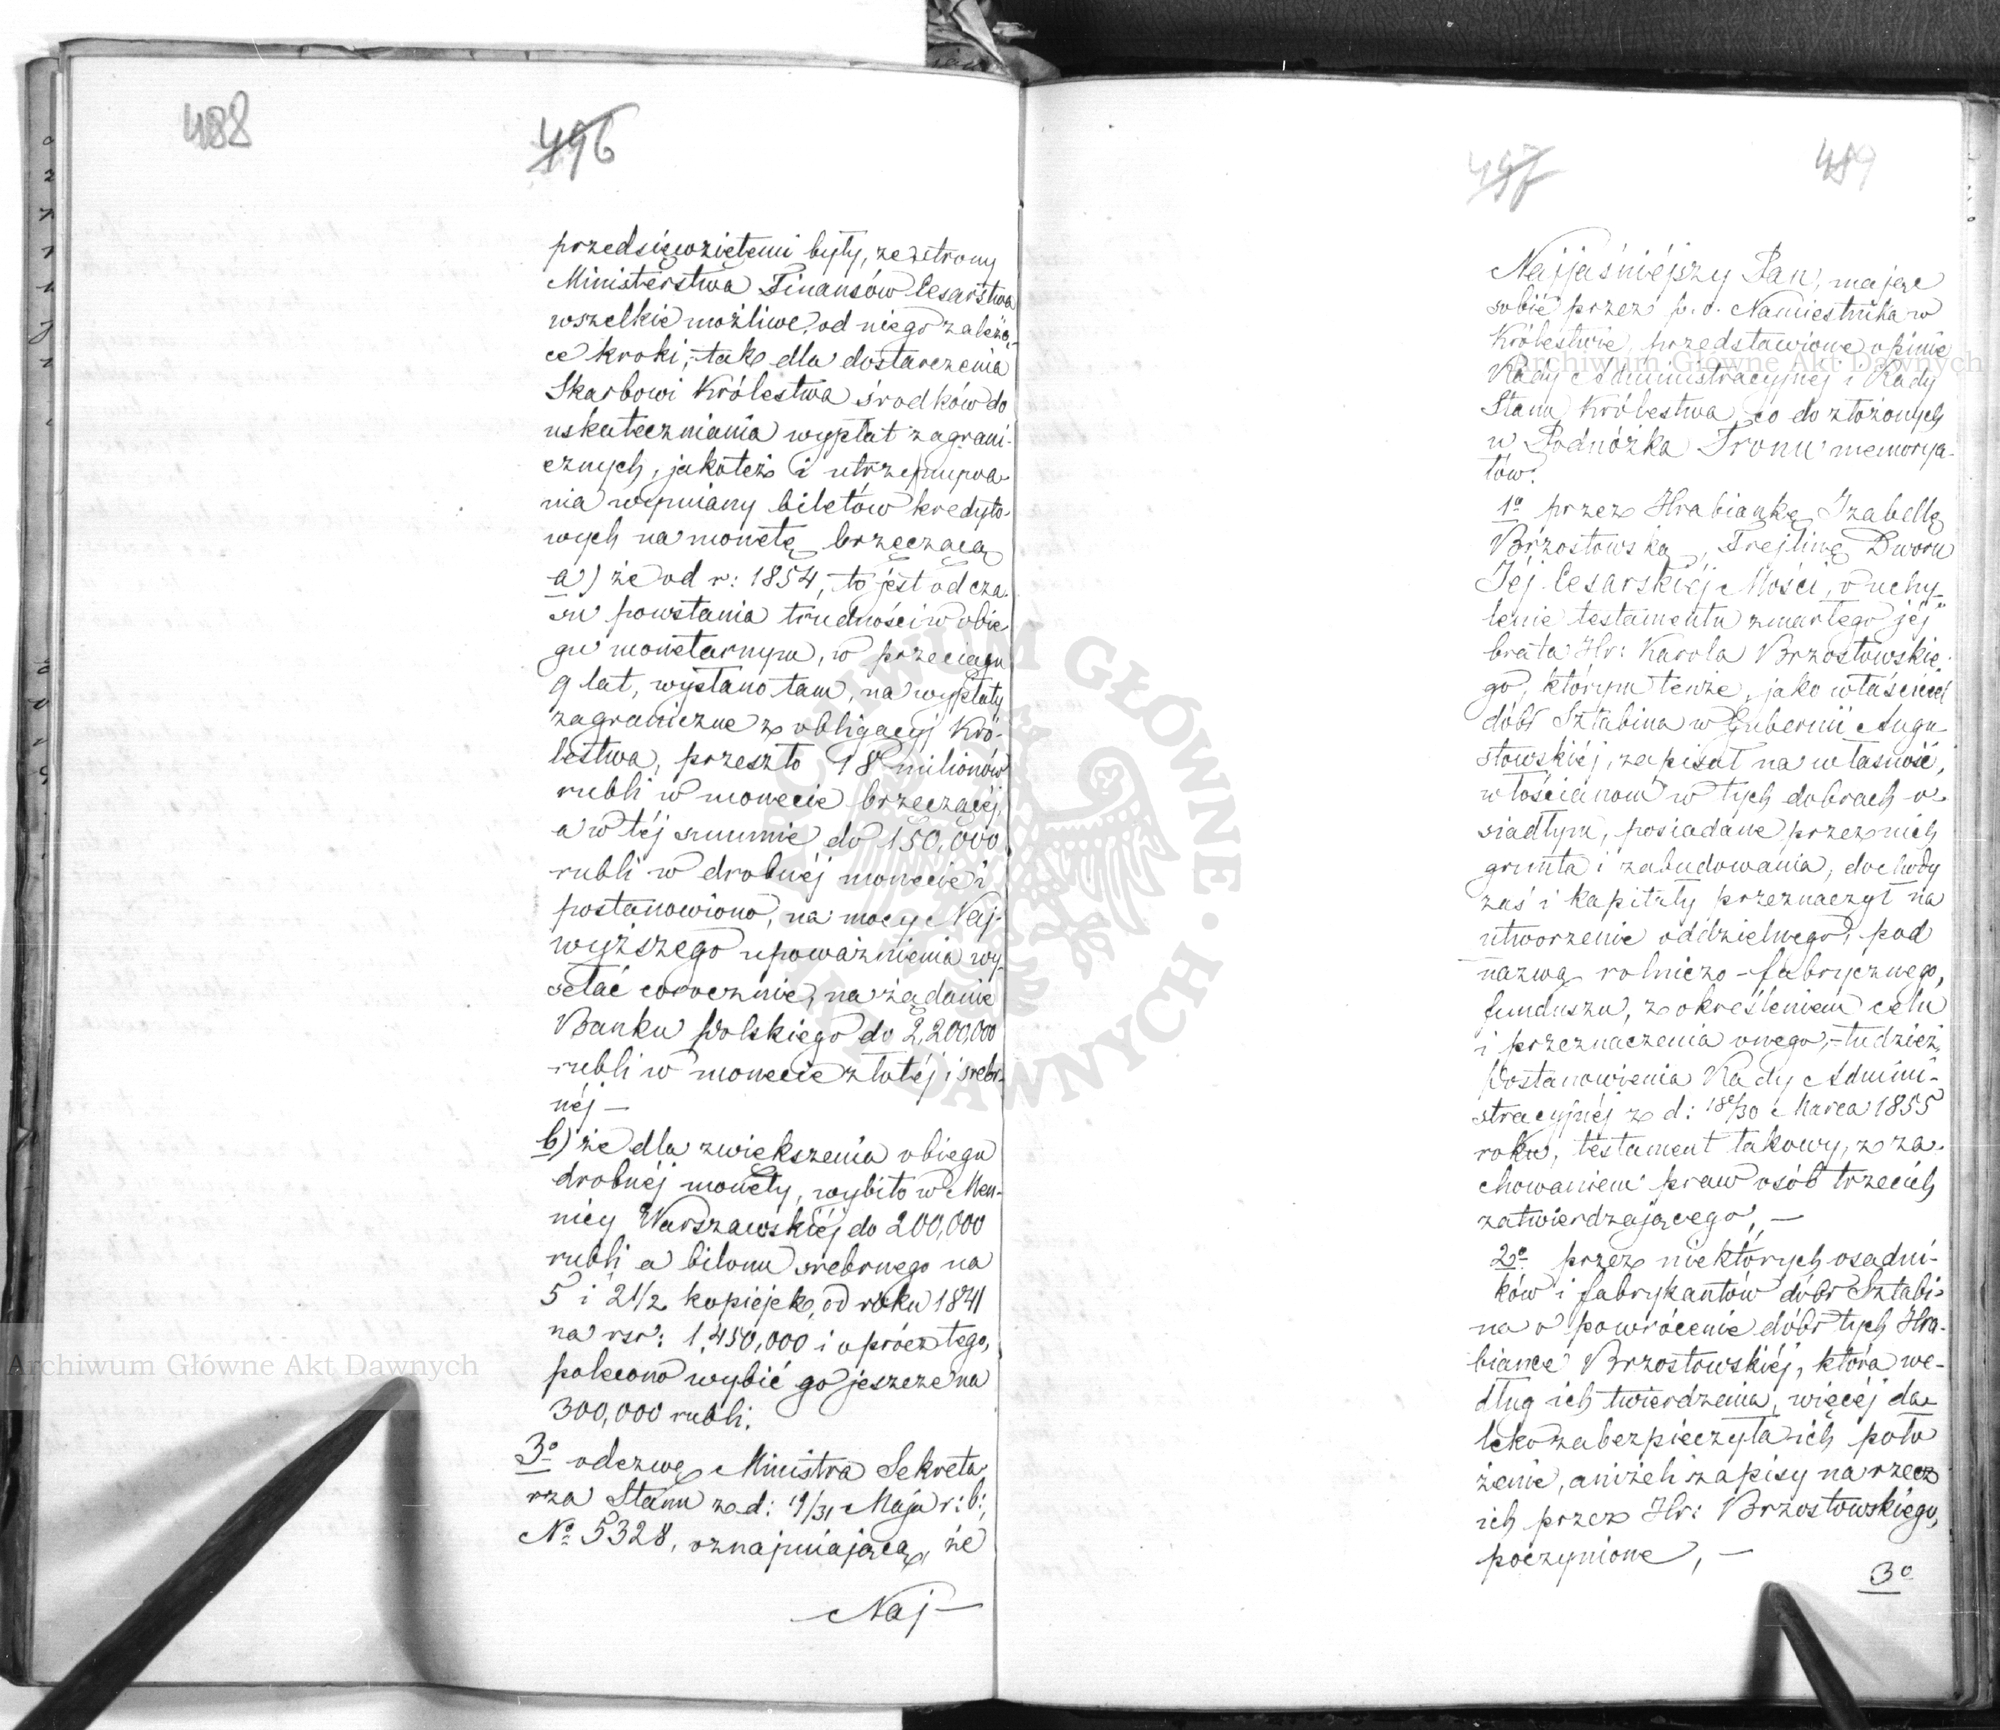 488
496
przedsięwziętemi były, ze strony
Ministerstwa Finansów Cesarstwa
wszelkie możliwe, od niego zależą-
ce kroki, tak dla dostarczenia
Skarbowi Królestwa środków do
uskuteczniania wypłat zagrani-
cznych, jakoteż i utrzymywa-
nia wymiany biletów kredyto-
wych na monetę brzęczącą
a) że od r: 1854, to jest od cza-
su powstania trudności w obie-
gu monetarnym, w przeciągu
9 lat, wysłano tam, na wypłaty
zagraniczne z obligacyj Kró-
lestwa, przeszło 18 milionów
rubli w monecie brzęczącéj,
a w téj summie do 150,000
rubli w drobnéj monecie i
postanowiono, na mocy Naj-
wyższego upoważnienia wy-
sełać corocznie, na żądanie
Banku Polskiego do 2,200,000
rubli w monecie złotéj i srebr-
néj —
b) że dla zwiększenia obiegu
drobnéj monety, wybito w Men-
nicy Warszawskiéj do 200,000
rubli a bilonu srebrnego na
5 i 2 1/2 kopiejek, od roku 1841
na rsr: 1,450,000 i oprócz tego,
polecono wybić go jeszcze na
300,000 rubli.
3o odezwę Ministra Sekreta-
rza Stanu z d: 19/31 Maja r: b:,
No 5328, oznajmiającą, że
Naj—
497
489
Najjaśniéjszy Pan, mając
sobie przez p. o. Namiestnika w
Królestwie, przedstawione opinie
Rady Administracyjnéj i Rady
Stanu Królestwa, co do złożonych
u Podnóżka Tronu memorya-
łów:
1o przez Hrabiankę Izabellę
Brzostowską, Frejlinę Dworu
Jéj Cesarskiéj Mości, o uchy-
lenie testamentu zmarłego jéj
brata Hr: Karola Brzostowskie-
go, którym tenże, jako właściciel
dóbr Sztabina w Gubernii Augu-
stowskiéj, zapisał na własność,
włościanom w tych dobrach o-
siadłym, posiadane przez nich
grunta i zabudowania, dochody
zaś i kapitały przeznaczył na
utworzenie oddzielnego, pod
nazwą rolniczo-fabrycznego,
funduszu, z określeniem celu
i przeznaczenia onego, – tudzież
Postanowienia Rady Admini-
stracyjnéj z d: 18/30 Marca 1855
roku, testament takowy, z za-
chowaniem praw osób trzecich
zatwierdzającego, —
2o przez niektórych osadni-
ków i fabrykantów dóbr Sztabi-
na o powrócenie dóbr tych Hra-
biance Brzostowskiéj, która we-
dług ich twierdzenia, więcéj da-
leko zabezpieczyła ich poło-
żenie, aniżeli zapisy na rzecz
ich przez Hr: Brzostowskiego,
poczynione, —
3o
Archiwum Główne Akt Dawnych
Archiwum Główne Akt Dawnych
ARCHIWUM GŁÓWNE · AKT DAWNYCH ·